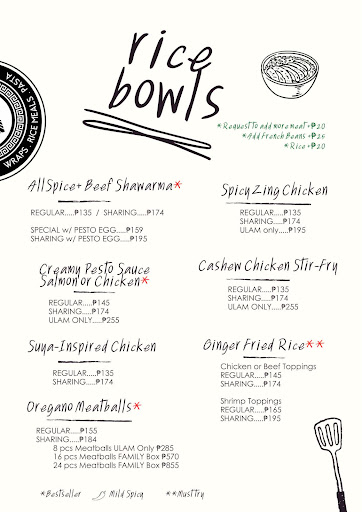 rice
bowls
WRAPS . RICE MEALS . PASTA
*Request to add more meat +₱20
*Add French Beans +₱25
*Rice +₱20
AllSpice+ Beef Shawarma*
REGULAR.....₱135 / SHARING.....₱174
SPECIAL w/ PESTO EGG.....₱159
SHARING w/ PESTO EGG.....₱195
Creamy Pesto Sauce
Salmon or Chicken*
REGULAR.....₱145
SHARING.....₱174
ULAM ONLY.....₱255
Suya-Inspired Chicken
REGULAR.....₱135
SHARING.....₱174
Oregano Meatballs*
REGULAR.....₱155
SHARING.....₱184
8 pcs Meatballs ULAM Only ₱285
16 pcs Meatballs FAMILY Box ₱570
24 pcs Meatballs FAMILY Box ₱855
Spicy Zing Chicken
REGULAR.....₱135
SHARING.....₱174
ULAM only.....₱195
Cashew Chicken Stir-Fry
REGULAR.....₱135
SHARING.....₱174
ULAM ONLY.....₱255
Ginger Fried Rice**
Chicken or Beef Toppings
REGULAR.....₱145
SHARING.....₱174
Shrimp Toppings
REGULAR.....₱165
SHARING.....₱195
*Bestseller Mild Spicy **Must try